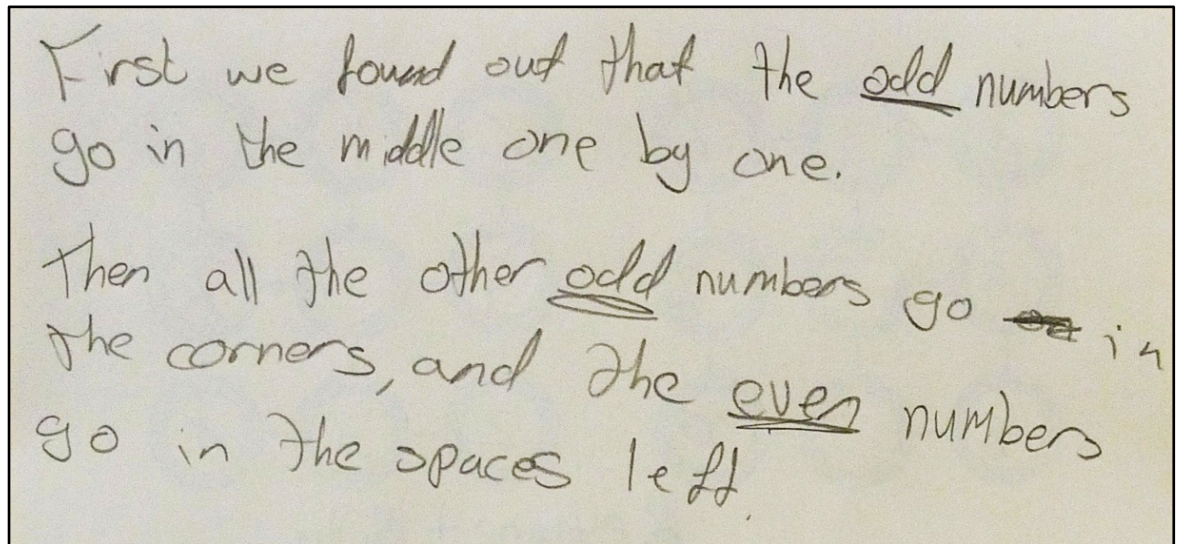 First we found out that the odd numbers
go in the middle one by one.
Then all the other odd numbers go in
the corners, and the even numbers
go in the spaces left.